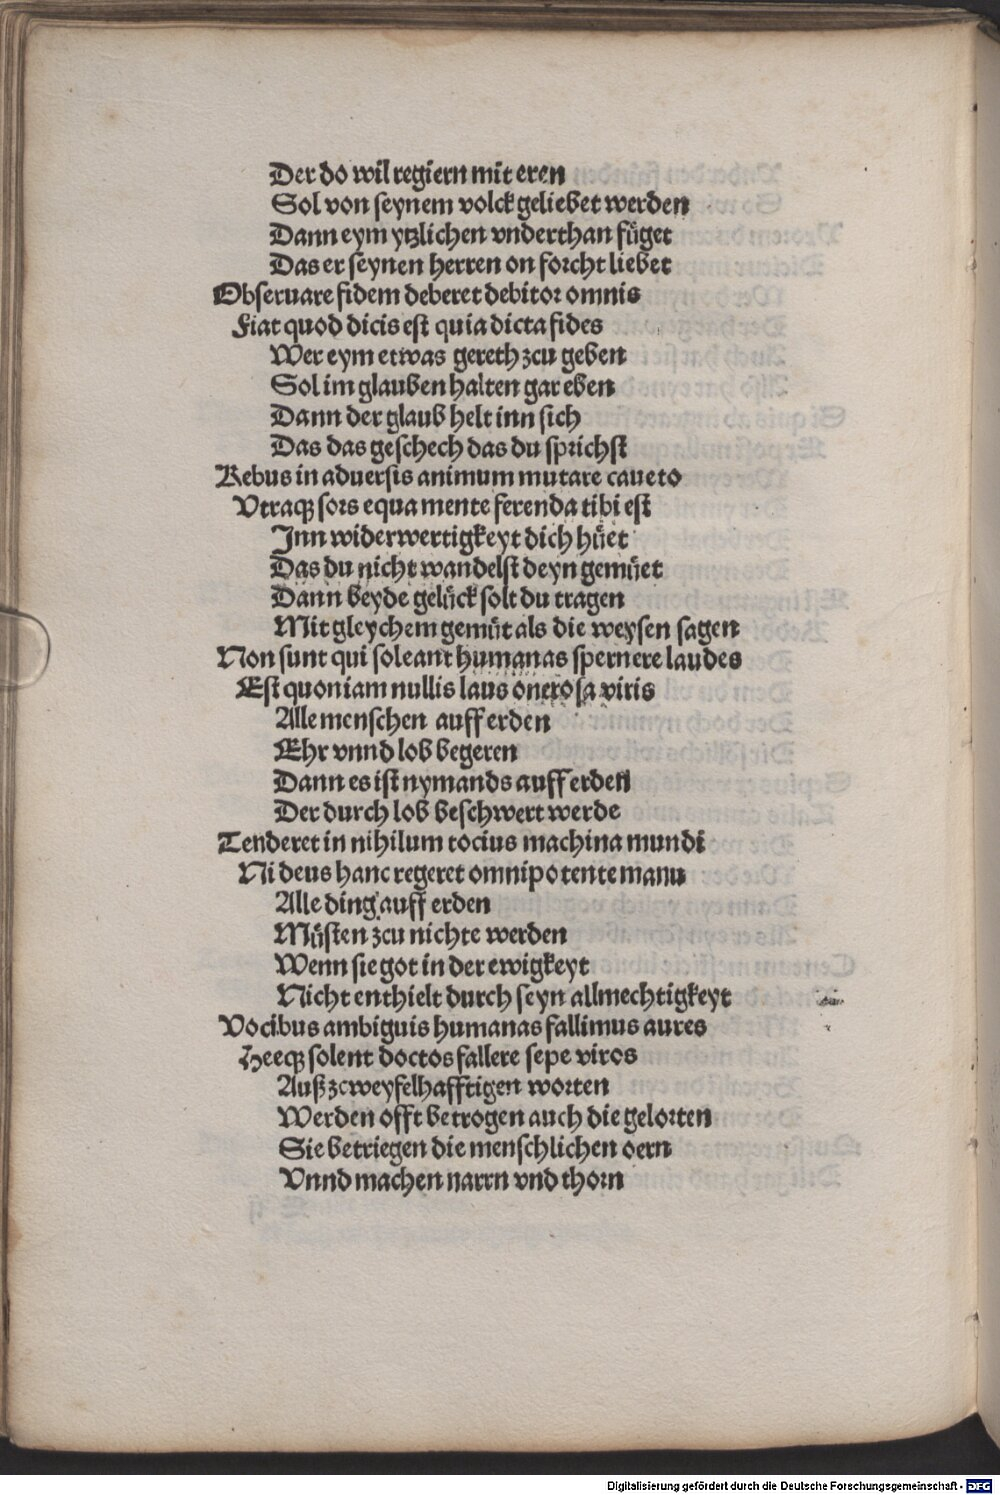 Der do wil regiern mit eren
Sol von seynem volck geliebet werden
Dann eym ytzlichen vnderthan fuͤget
Das er seynen herren on forcht liebet
Obseruare fidem deberet debitor omnis
Fiat quod dicis est quia dicta fides
Wer eym etwas gereth zcu geben
Sol im glauben halten gar eben
Dann der glaub helt inn sich
Das das geschech das du sprichst
Rebus in aduersis animum mutare caueto
Vtraqꝫ sors equa mente ferenda tibi est
Inn widerwertigkeyt dich huͤet
Das du nicht wandelst deyn gemuͤet
Dann beyde geluͤck solt du tragen
Mit gleychem gemuͤt als die weysen sagen
Non sunt qui soleant humanas spernere laudes
Est quoniam nullis laus onerosa viris
Alle menschen auff erden
Ehr vnnd lob begeren
Dann es ist nymands auff erden
Der durch lob beschwert werde
Tenderet in nihilum tocius machina mundi
Ni deus hanc regeret omnipotente manu
Alle ding auff erden
Muͤsten zcu nichte werden
Wenn sie got in der ewigkeyt
Nicht enthielt durch seyn allmechtigkeyt
Vocibus ambiguis humanas fallimus aures
Heeqꝫ solent doctos fallere sepe viros
Auß zcweyfelhafftigen worten
Werden offt betrogen auch die gelorten
Sie betriegen die menschlichen oern
Vnnd machen narrn vnd thorn
Digitalisierung gefördert durch die Deutsche Forschungsgemeinschaft - DFG